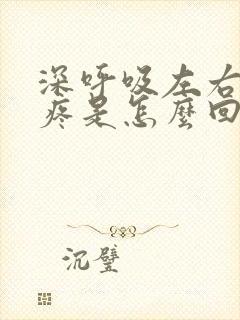 深呼吸左右
疼是怎麼回
沉璧